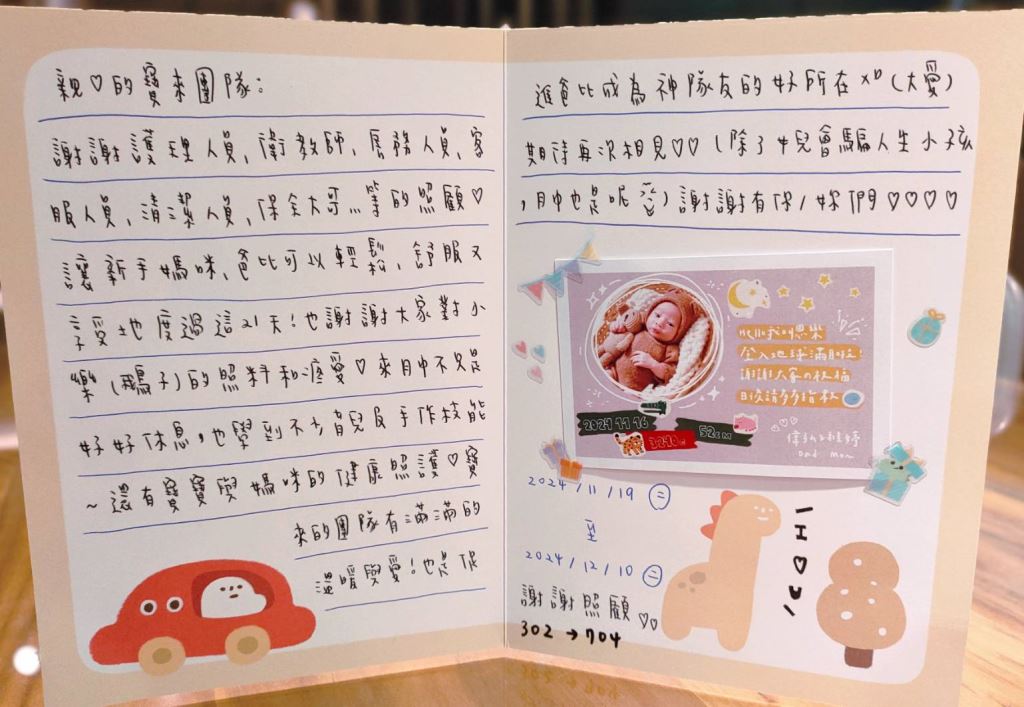 親♡的寶來團隊：
謝謝護理人員、衛教師、房務人員、客
服人員、清潔人員、保全大哥…等的照顧♡
讓新手媽咪、爸比可以輕鬆、舒服又
享受地度過這21天！也謝謝大家對小
樂（鴿子）的照料和疼愛♡來月中不只是
好好休息，也學到不少育兒及手作技能
～還有寶寶與媽咪的健康照護♡寶
來的團隊有滿滿的
溫暖與愛！也是促
進爸比成為神隊友的好所在xD（大愛）
期待再次相見♡♡（除了女兒會騙人生小孩
，月中也是呢）謝謝有你/妳們♡♡♡♡
Hello我叫恩樂
登入地球滿月啦！
謝謝大家的祝福
日後請多多指教
2024 11 16
52cm
Dad Mom
2024/11/19（二）
至
2024/12/10（二）
謝謝照顧♡♡
302→704